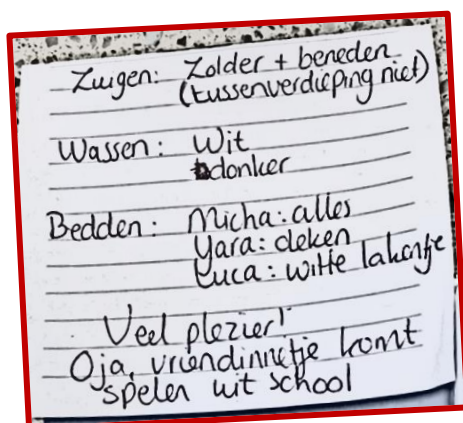 Zuigen: Zolder + beneden
(tussenverdieping niet)
Wassen: Wit
donker
Bedden: Micha: alles
Yara: deken
Luca: witte lakentje
Veel plezier!
Oja, vriendinnetje komt
spelen uit school